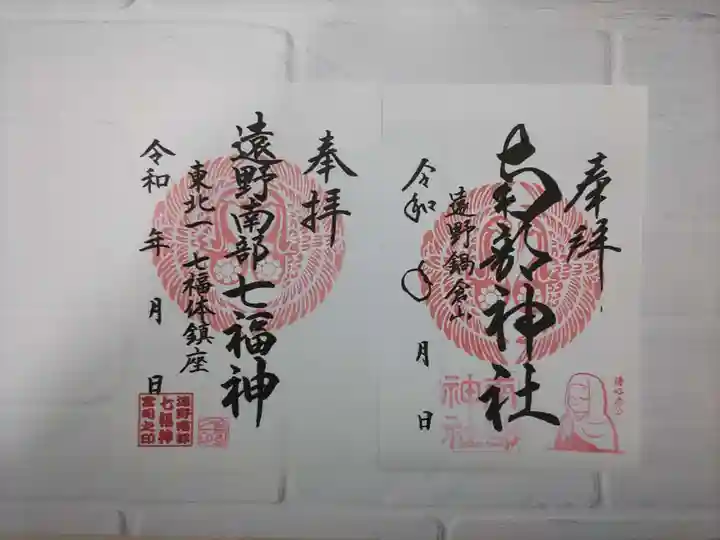 奉拝
南部神社
遠野鍋倉山
令和 年 月 日
奉拝
遠野南部七福神
東北一 七福体鎮座
令和 年 月 日
遠野南部
七福神
宮司之印